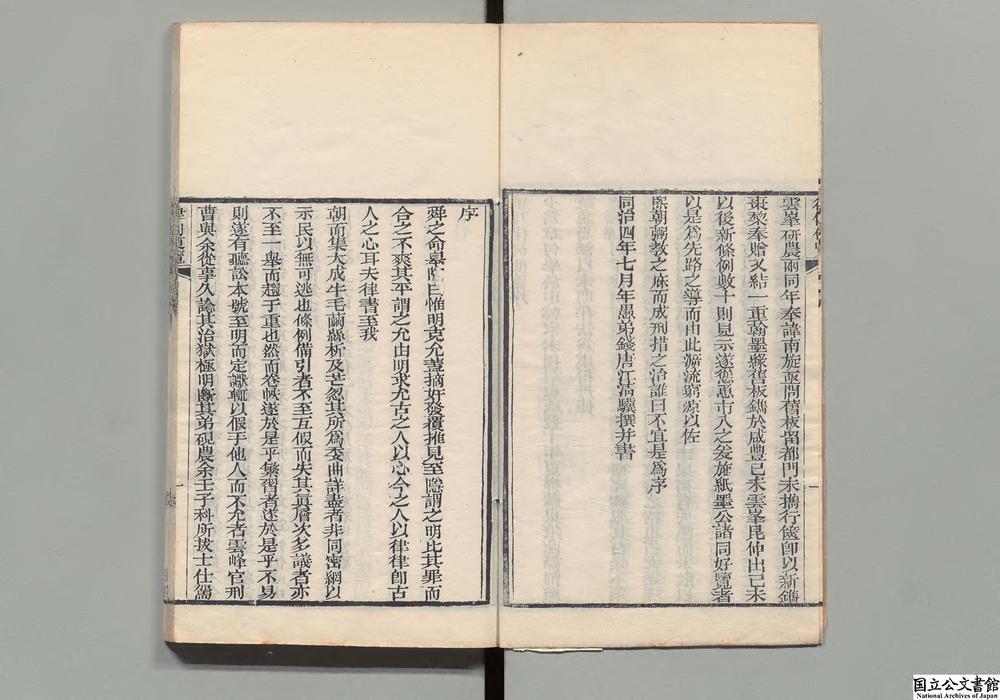 雲峯研農兩同年奉諱南旋亟問舊板留都門未攜行篋卽以新鐫
棗棃奉贈又結一重翰墨緣舊板鐫於咸豐己未雲峯昆仲出己未
以後新條例數十則見示遂慫恿市人之爰施紙墨公諸同好覽者
以是爲先路之導而由此溯流窮源以佐
熙朝弼教之庥而成刑措之治誰曰不宜是爲序
同治四年七月年愚弟錢唐江清驥撰并書
序
舜之命皋陶曰惟明克允蓋摘奸發覆推見至隱謂之明比其罪而
合之不爽其平謂之允由明求允古之人以心今之人以律律卽古
人之心耳夫律書至我
朝而集大成牛毛繭絲析及芒忽其所爲委曲詳盡者非同密網以
示民以無可逃也條例備引者不至互假而失其眞層次多議者亦
不至一舉而趨于重也然而卷帙遂於是乎繁習者遂於是乎不易
則遂有聽訟本號至明而定讞輒以假于他人而不允者雲峰官刑
曹與余從事久論其治獄極明斷其弟硯農余壬子科所拔士仕
一
一
国立公文書館
National Archives of Japan